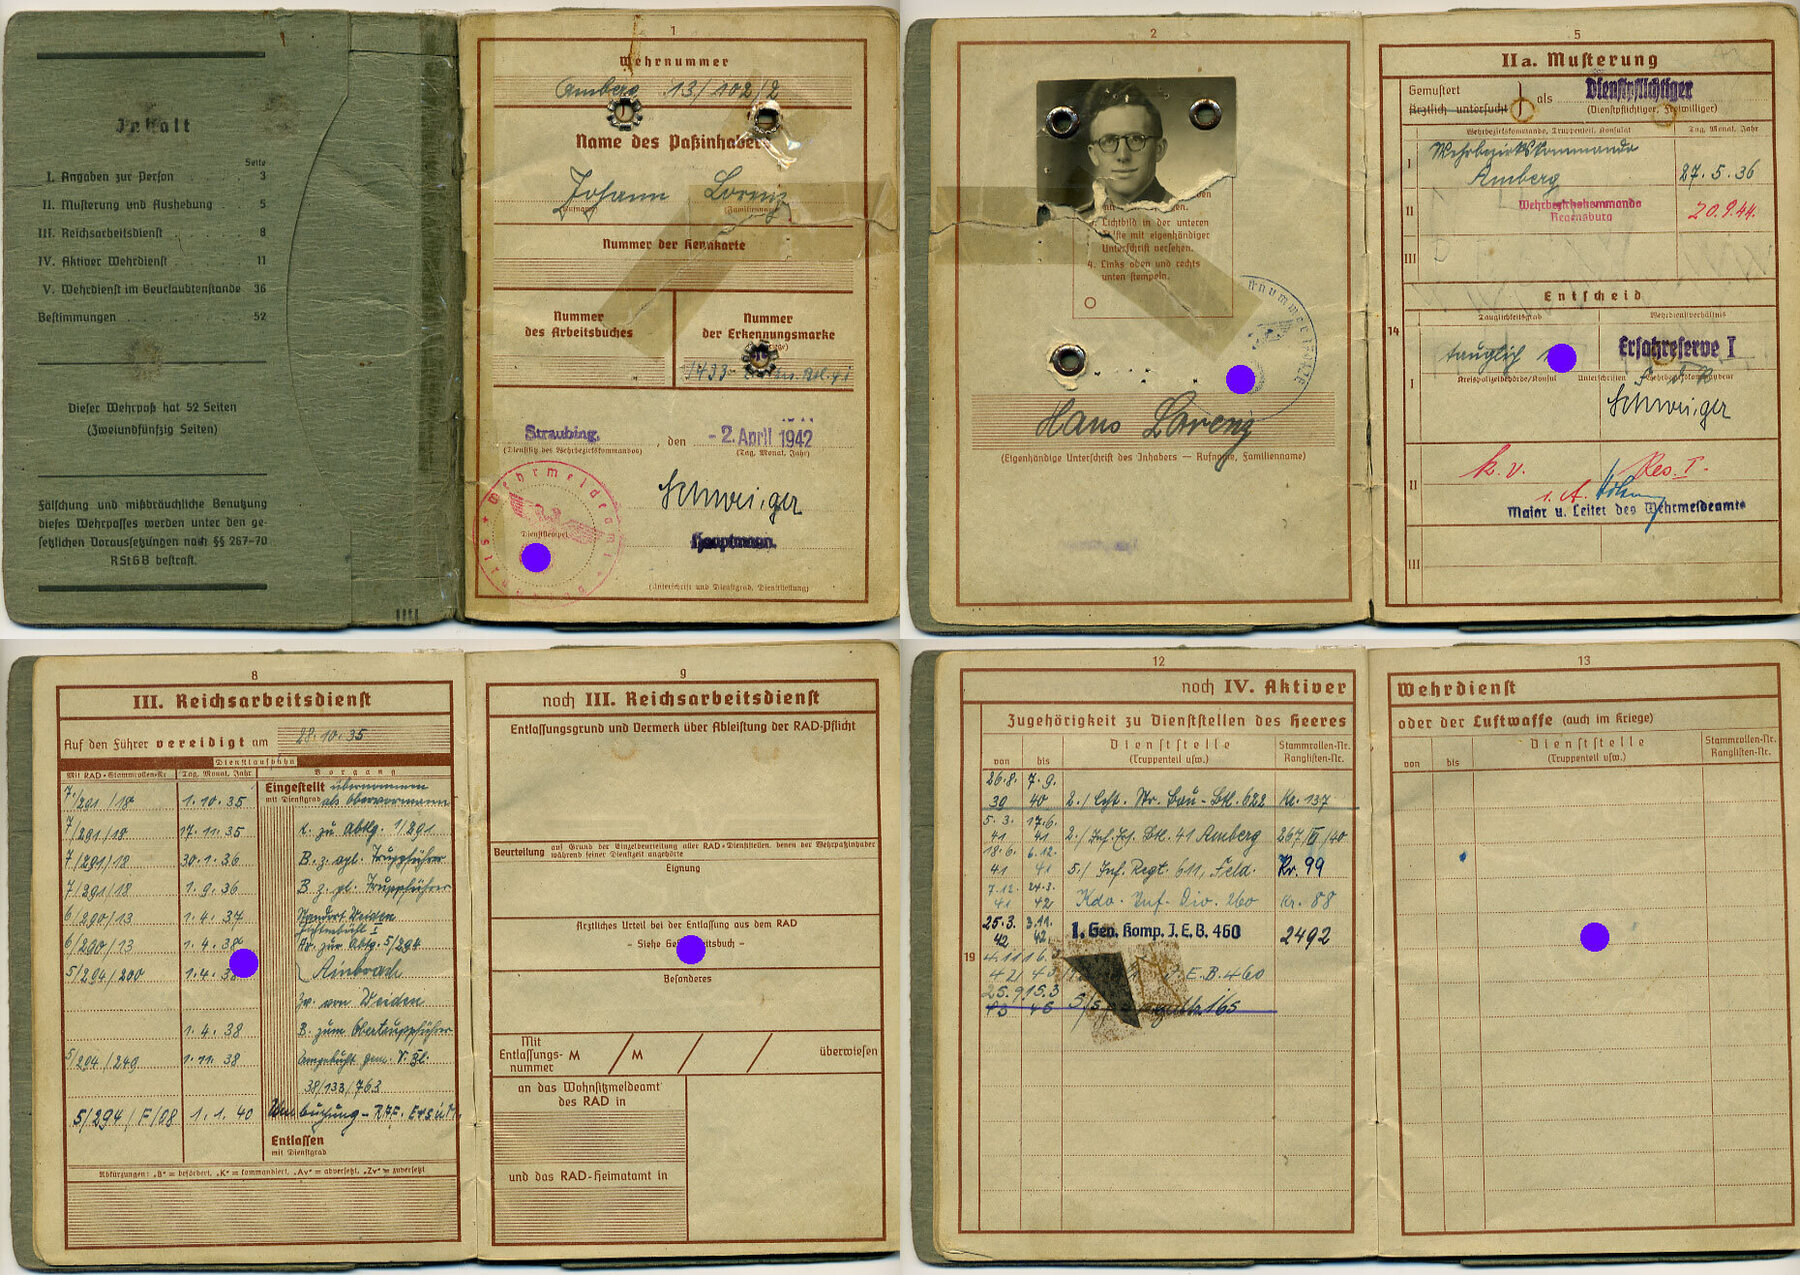 Inhalt
Seite
I. Angaben zur Person . . . 3
II. Musterung und Aushebung . . 5
III. Reichsarbeitsdienst . . . 8
IV. Aktiver Wehrdienst . . . 11
V. Wehrdienst im Beurlaubtenstande 36
Bestimmungen . . . . 52
Dieser Wehrpaß hat 52 Seiten
(Zweiundfünfzig Seiten)
Fälschung und mißbräuchliche Benutzung
dieses Wehrpasses werden unter den ge-
setzlichen Voraussetzungen nach §§ 267-70
RStGB bestraft.
1
Wehrnummer
Amberg 13/102/2
Name des Paßinhabers
Johann Lorenz
(Rufname) (Familienname)
Nummer der Kennkarte
Nummer
des Arbeitsbuches
Nummer
der Erkennungsmarke
1433-
Straubing, den -2. April 1942
(Dienstsitz des Wehrbezirkskommandos) (Tag, Monat, Jahr)
Wehrmeldeamt
Dienststempel
Schweiger
Hauptmann.
(Unterschrift und Dienstgrad, Dienststellung)
2
Lichtbild in der unteren
mit eigenhändiger
Unterschrift versehen.
4. Links oben und rechts
unten stempeln.
Hans Lorenz
(Eigenhändige Unterschrift des Inhabers — Rufname, Familienname)
5
IIa. Musterung
Gemustert
Ärztlich untersucht
als Dienstpflichtiger
(Dienstpflichtiger, Freiwilliger)
Wehrbezirkskommando, Truppenteil, Konsulat Tag, Monat, Jahr
I Wehrbezirkskommando
Amberg 27. 5. 36
II Wehrbezirkskommando
Regensburg 20.9.44.
III
Entscheid
Tauglichkeitsgrad Wehrdienstverhältnis
14
tauglich Ersatzreserve I
Kreispolizeibehörde/Konsul Unterschriften Wehrbezirkskommandeur
I Schweiger
II k.v. Res. I.
i. A.
Major u. Leiter des Wehrmeldeamts
III
8
III. Reichsarbeitsdienst
Auf den Führer vereidigt am 28. 10. 35
Dienstlaufbahn
Mit RAD-Stammrollen-Nr. Tag, Monat, Jahr Vorgang
7/291/18 1. 10. 35 Eingestellt übernommen
mit Dienstgrad als Obervormann
7/291/18 17. 11. 35 K. zu Abtlg. 1/291
7/291/18 30. 1. 36 B. z. apl. Truppführer
7/291/18 1. 9. 36 B. z. pl. Truppführer
6/290/13 1. 4. 37 Standort Weiden
6/290/13 1. 4. 38 Av. zur Abtg. 5/294
5/294/200 1. 4. 38 Ainbrach
Zv. von Weiden
1. 4. 38 B. zum Obertruppführer
5/294/249 1. 11. 38
38/133/763
5/294/F/08 1. 1. 40 Umbuchung -
Entlassen
mit Dienstgrad
Abkürzungen: „B“ = befördert, „K“ = kommandiert, „Av“ = abversetzt, „Zv“ = zuversetzt
9
noch III. Reichsarbeitsdienst
Entlassungsgrund und Vermerk über Ableistung der RAD-Pflicht
Beurteilung auf Grund der Einzelbeurteilung aller RAD-Dienststellen, denen der Wehrpaßinhaber
während seiner Dienstzeit angehörte
Eignung
Ärztliches Urteil bei der Entlassung aus dem RAD
Besonderes
Mit
Entlassungs-
nummer M / M / / überwiesen
an das Wohnsitzmeldeamt
des RAD in
und das RAD-Heimatamt in
12
noch IV. Aktiver
Zugehörigkeit zu Dienststellen des Heeres
von bis Dienststelle
(Truppenteil usw.) Stammrollen-Nr.
Ranglisten-Nr.
26.8. 7.9.
39 40 2./ Lcht. Str. Bau-Btl. 622 Nr. 137
5.3. 17.6.
41 41 2./ Inf. Ers. Btl. 41 Amberg 267/II/40
18.6. 6.12.
41 41 5./ Inf. Regt. 611, Feld. Nr. 99
7.12. 24.3.
41 42 Kdo. Inf. Div. 260 Nr. 88
25.3. 3.11.
42 42 1. Gen. Komp. I. E. B. 460 2492
19
E. B. 460
165
13
Wehrdienst
oder der Luftwaffe (auch im Kriege)
von bis Dienststelle
(Truppenteil usw.) Stammrollen-Nr.
Ranglisten-Nr.